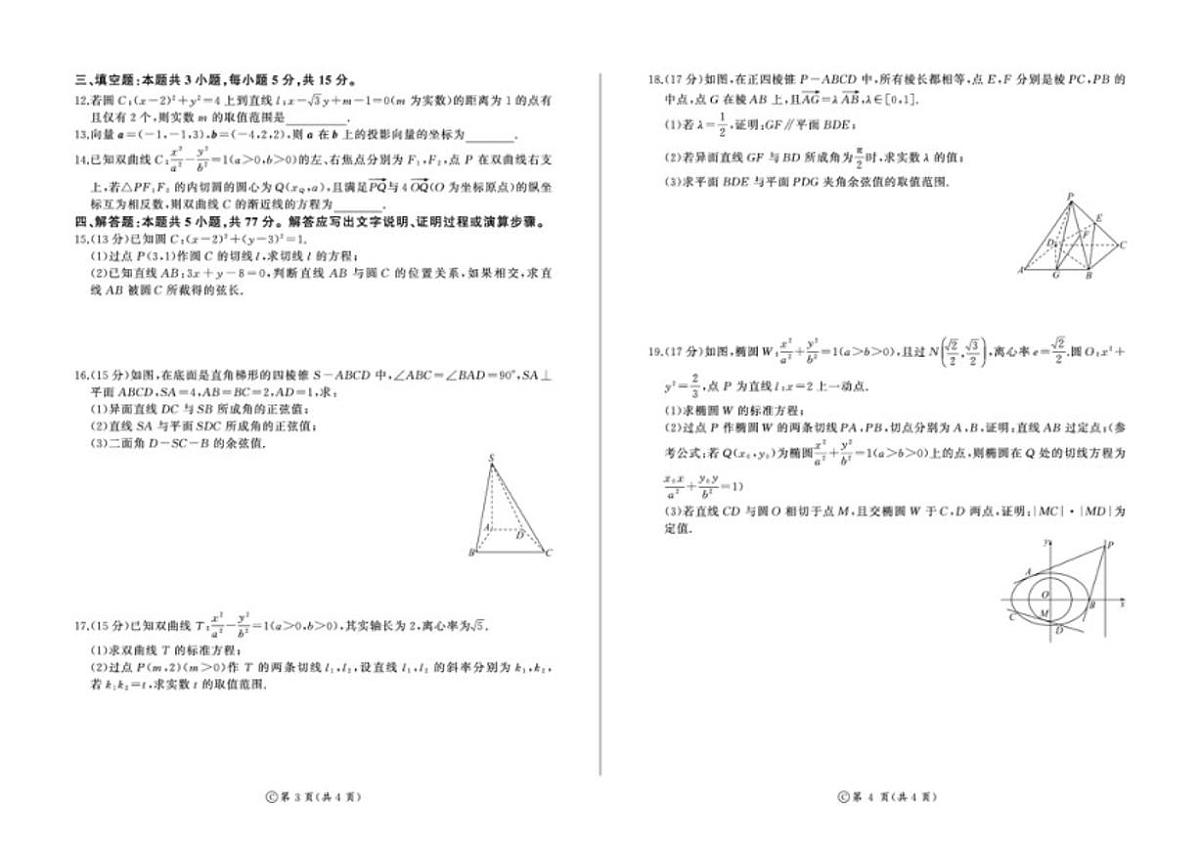 三、填空题:本题共 3 小题,每小题 5 分,共 15 分。
12.若圆 C:(x-2)²+y²=4 上到直线 l:x-√3y+m-1=0(m 为实数)的距离为 1 的点有
且仅有 2 个,则实数 m 的取值范围是________.
13.向量 a=(-1,-1,3),b=(-4,2,2),则 a 在 b 上的投影向量的坐标为________.
14.已知双曲线 C:x²/a²-y²/b²=1(a>0,b>0)的左、右焦点分别为 F₁,F₂,点 P 在双曲线右支
上,若△PF₁F₂ 的内切圆的圆心为 Q(x_Q,a),且满足PQ与 4 OQ(O 为坐标原点)的纵坐
标互为相反数,则双曲线 C 的渐近线的方程为________.
四、解答题:本题共 5 小题,共 77 分。解答应写出文字说明、证明过程或演算步骤。
15.(13 分)已知圆 C:(x-2)²+(y-3)²=1.
(1)过点 P(3,1)作圆 C 的切线 l,求切线 l 的方程;
(2)已知直线 AB:3x+y-8=0,判断直线 AB 与圆 C 的位置关系,如果相交,求直
线 AB 被圆 C 所截得的弦长.
16.(15 分)如图,在底面是直角梯形的四棱锥 S-ABCD 中,∠ABC=∠BAD=90°,SA⊥
平面 ABCD,SA=4,AB=BC=2,AD=1,求:
(1)异面直线 DC 与 SB 所成角的正弦值;
(2)直线 SA 与平面 SDC 所成角的正弦值;
(3)二面角 D-SC-B 的余弦值.
S
A
D
B
C
17.(15 分)已知双曲线 T:x²/a²-y²/b²=1(a>0,b>0),其实轴长为 2,离心率为√5.
(1)求双曲线 T 的标准方程;
(2)过点 P(m,2)(m>0)作 T 的两条切线 l₁,l₂,设直线 l₁,l₂ 的斜率分别为 k₁,k₂,
若 k₁k₂=t,求实数 t 的取值范围.
Ⓒ第 3 页(共 4 页)
18.(17 分)如图,在正四棱锥 P-ABCD 中,所有棱长都相等,点 E,F 分别是棱 PC,PB 的
中点,点 G 在棱 AB 上,且AG=λ AB,λ∈[0,1].
(1)若 λ=1/2,证明:GF∥平面 BDE;
(2)若异面直线 GF 与 BD 所成角为π/2时,求实数 λ 的值;
(3)求平面 BDE 与平面 PDG 夹角余弦值的取值范围.
P
E
F
D
C
A
G
B
19.(17 分)如图,椭圆 W:x²/a²+y²/b²=1(a>b>0),且过 N(√2/2,√3/2),离心率 e=√2/2.圆 O:x²+
y²=2/3,点 P 为直线 l:x=2 上一动点.
(1)求椭圆 W 的标准方程;
(2)过点 P 作椭圆 W 的两条切线 PA,PB,切点分别为 A,B,证明:直线 AB 过定点;(参
考公式:若 Q(x₀,y₀)为椭圆x²/a²+y²/b²=1(a>b>0)上的点,则椭圆在 Q 处的切线方程为
x₀x/a²+y₀y/b²=1)
(3)若直线 CD 与圆 O 相切于点 M,且交椭圆 W 于 C,D 两点,证明:|MC|·|MD|为
定值.
y
P
A
O
B
x
M
C
D
Ⓒ第 4 页(共 4 页)